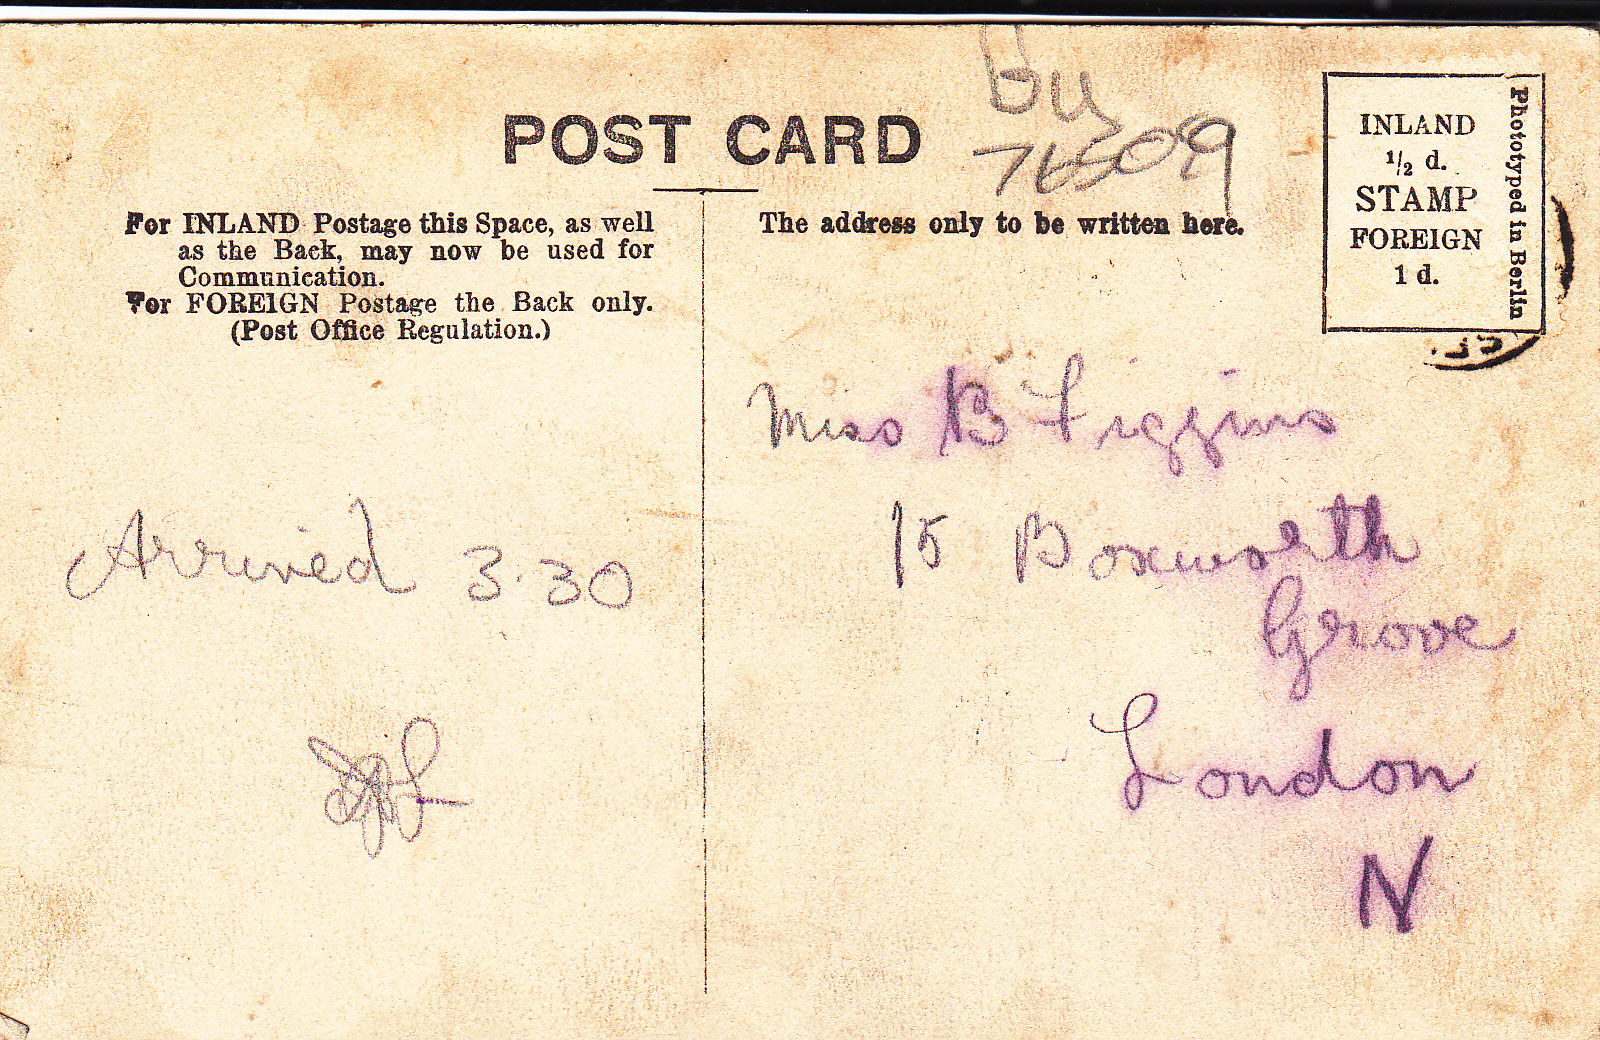 POST CARD
76509
For INLAND Postage this Space, as well
as the Back, may now be used for
Communication.
For FOREIGN Postage the Back only.
(Post Office Regulation.)
The address only to be written here.
INLAND
1/2 d.
STAMP
FOREIGN
1 d.
Phototyped in Berlin
Miss B Figgins
15 Boxworth
Grove
London
N
Arrived 3.30